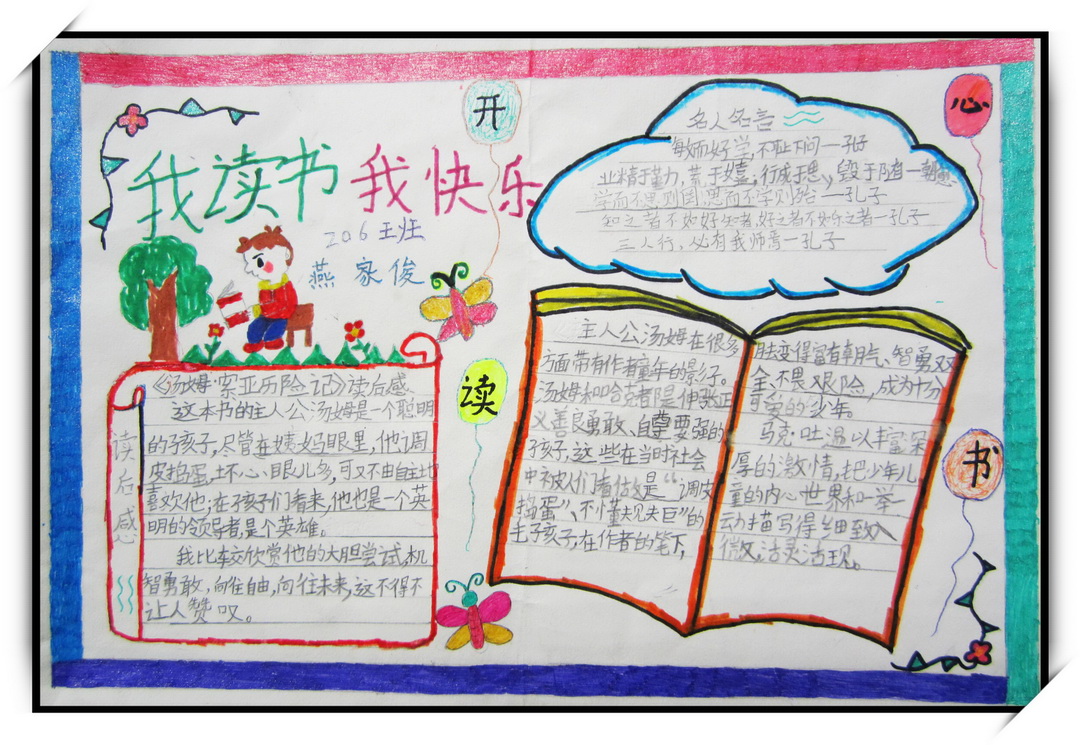 开
心
我读书 我快乐
206王班
燕家俊
名人名言
敏而好学,不耻下问—孔子
业精于勤,荒于嬉,行成于思,毁于随
学而不思则罔思而不学则殆—孔子
知之者不如好知者,好之者不如乐之者—孔子
三人行,必有我师焉—孔子
读后感
《汤姆·索亚历险记》读后感
这本书的主人公汤姆是一个聪明
的孩子,尽管在姨妈眼里,他调
皮捣蛋,坏心眼儿多,可又不由自主地
喜欢他;在孩子们看来,他也是一个英
明的领导者,是个英雄。
我比较欣赏他的大胆尝试,机
智勇敢,向往自由,向往未来,这不得不
让人赞叹。
读
主人公汤姆在很多
方面带有作者童年的影子。
汤姆和哈克都是伸张正
义善良勇敢、自尊要强的
孩子,这些在当时社会
中被人们看做是“调皮
捣蛋”、不懂夫见夫巨”的
毛孩子,在作者的笔下,
却变得富有朝气、智勇双
全、不畏艰险,成为十分
可爱的少年。
马克·吐温以丰富深
厚的激情,把少年儿
童的内心世界和一举一
动描写得细致入
微,活灵活现。
书